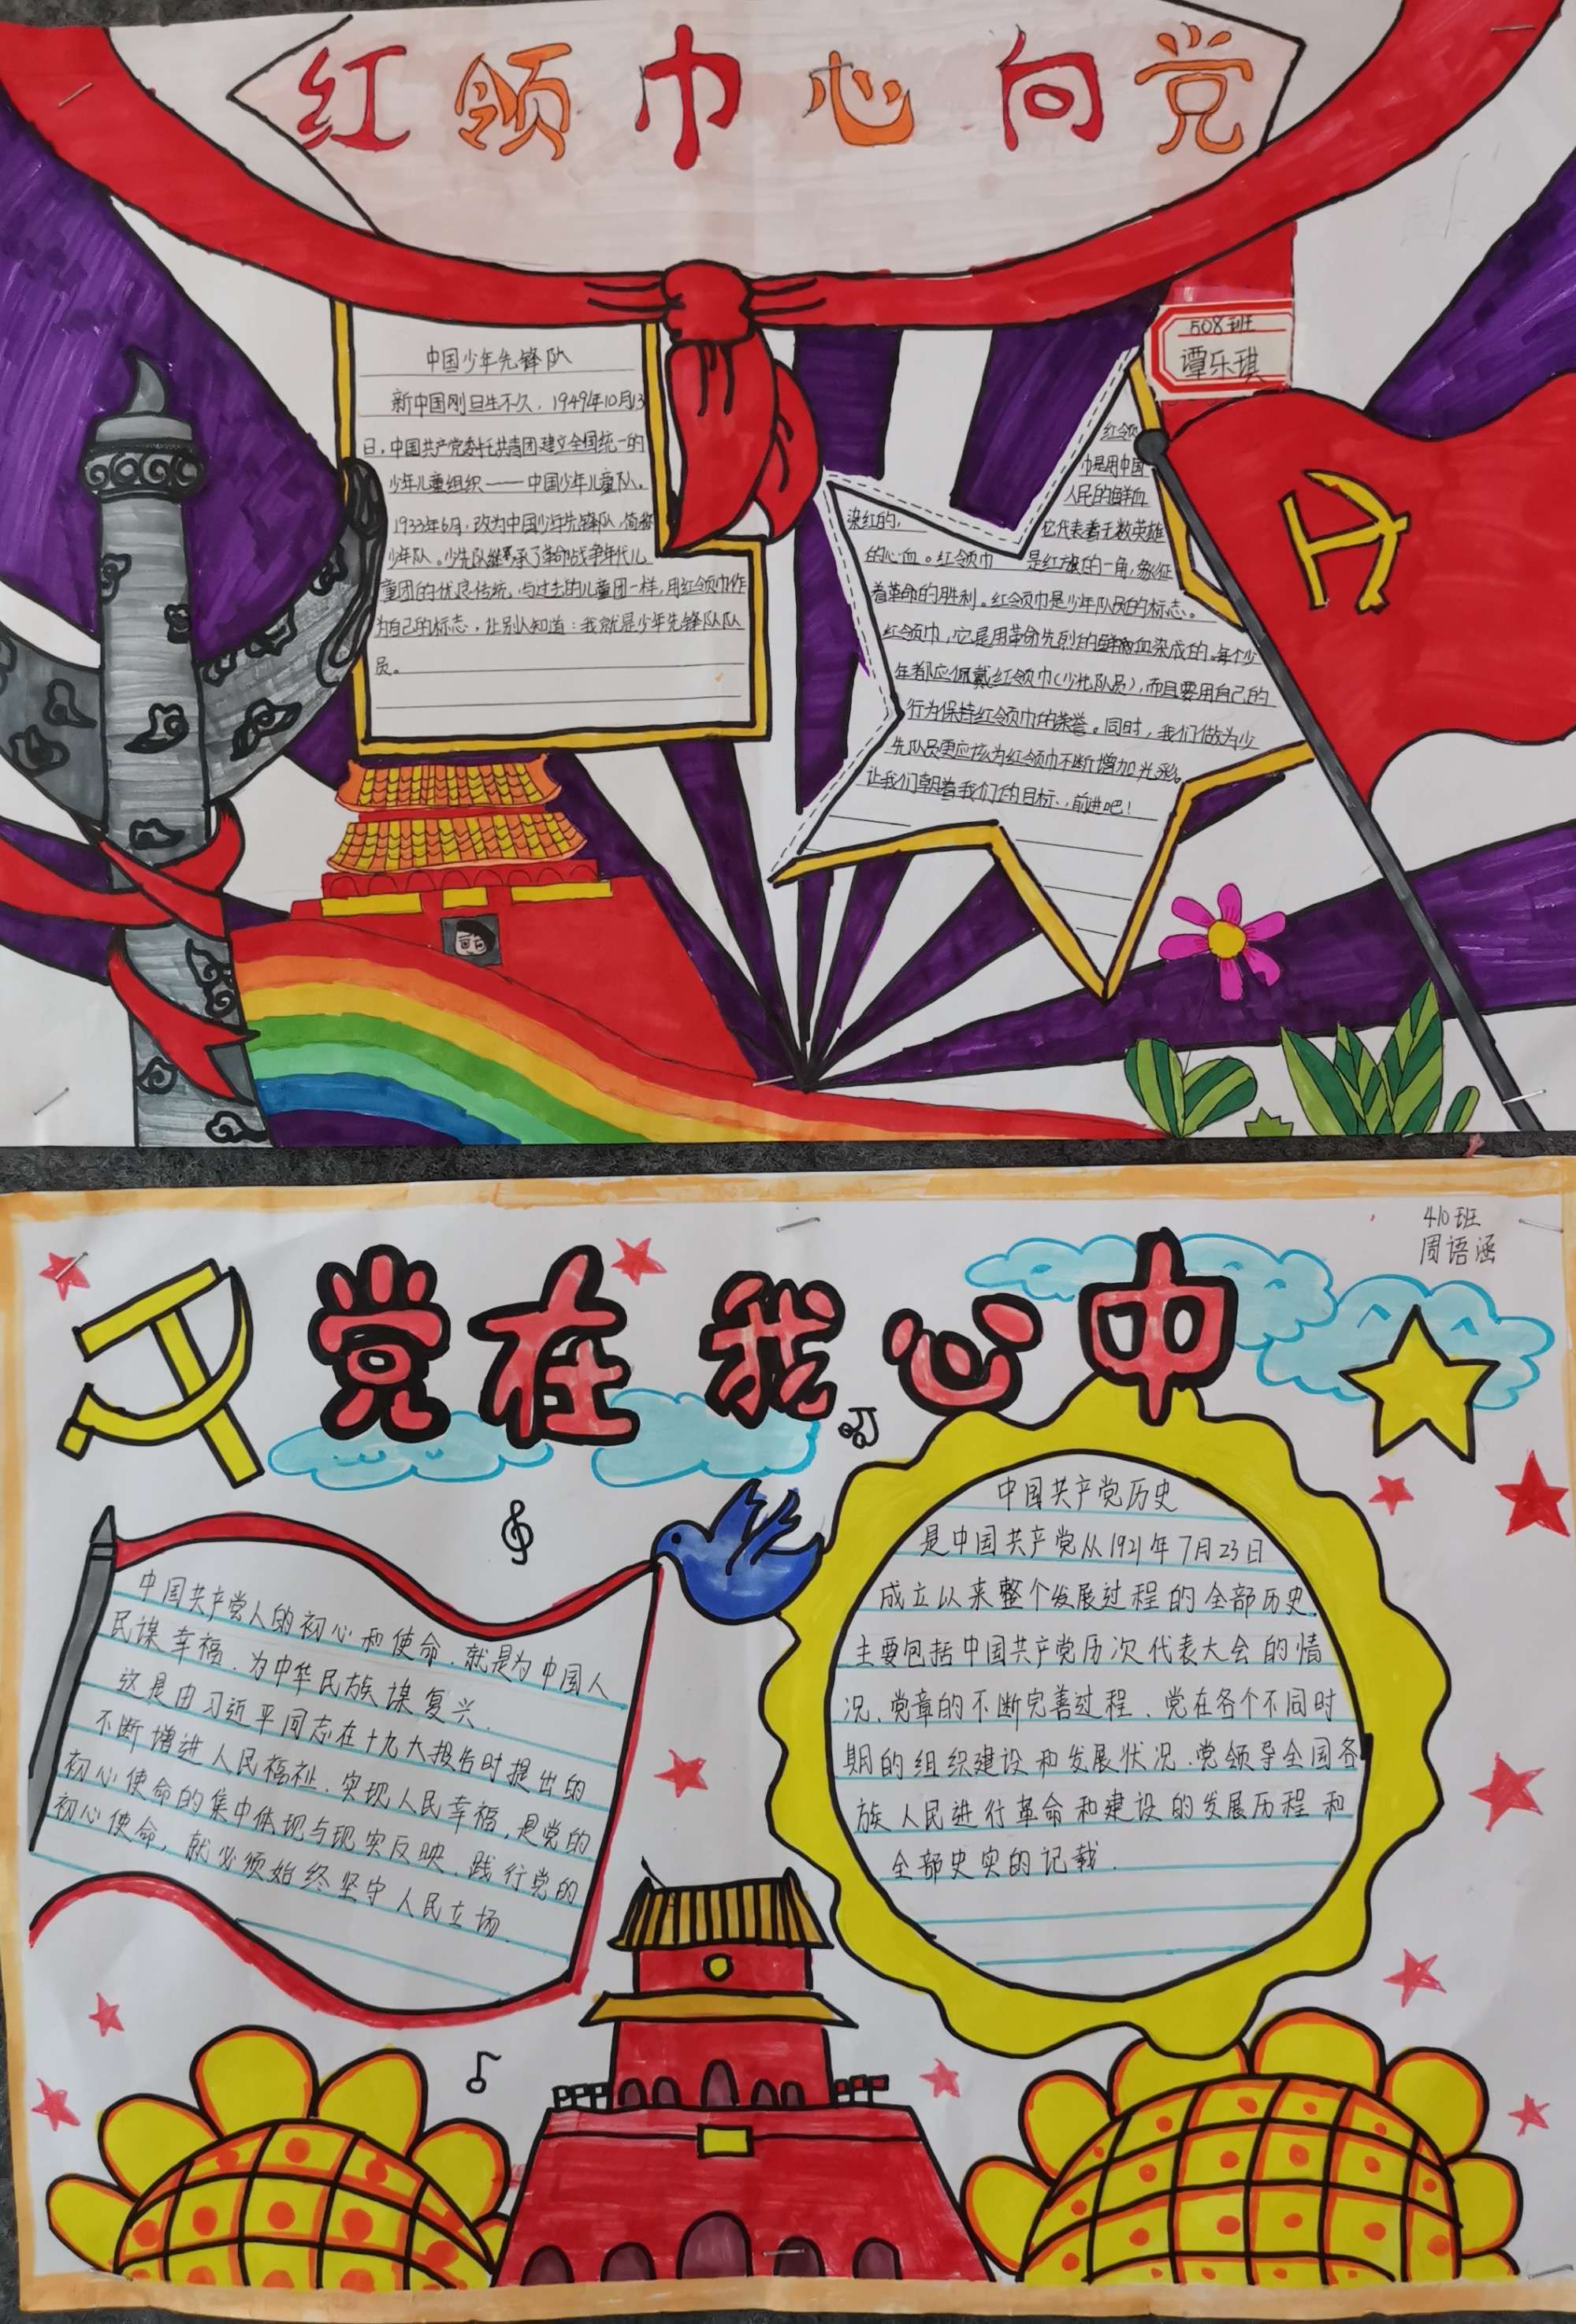 红领巾心向党
508班
谭乐琪
中国少年先锋队
新中国刚旦生不久，1949年10月13
日，中国共产党委托共青团建立全国统一的
少年儿童组织——中国少年儿童队。
1933年6月，改为中国少年先锋队，简称
少年队。少先队继承了革命战争年代儿
童团的优良传统，与过去的儿童团一样，用红领巾作
为自己的标志，让别人知道：我就是少年先锋队队
员。
红领
巾是用中国
人民的鲜血
染红的，
它代表着无数英雄
的心血。红领巾是红旗的一角，象征
着革命的胜利。红领巾是少年队员的标志。
红领巾，它是用革命先烈的鲜血染成的。每个少
年都应佩戴红领巾（少先队员），而且要用自己的
行为保持红领巾的荣誉。同时，我们做为少
先队员更应该为红领巾不断增加光彩。
让我们朝着我们的目标，前进吧！
410班
周语涵
党在我心中
中国共产党人的初心和使命，就是为中国人
民谋幸福，为中华民族谋复兴。
这是由习近平同志在十九大报告时提出的
不断增进人民福祉、实现人民幸福，是党的
初心使命的集中体现与现实反映，践行党的
初心使命，就必须始终坚守人民立场。
中国共产党历史
是中国共产党从1921年7月23日
成立以来整个发展过程的全部历史。
主要包括中国共产党历次代表大会的情
况、党章的不断完善过程、党在各个不同时
期的组织建设和发展状况、党领导全国各
族人民进行革命和建设的发展历程和
全部史实的记载.